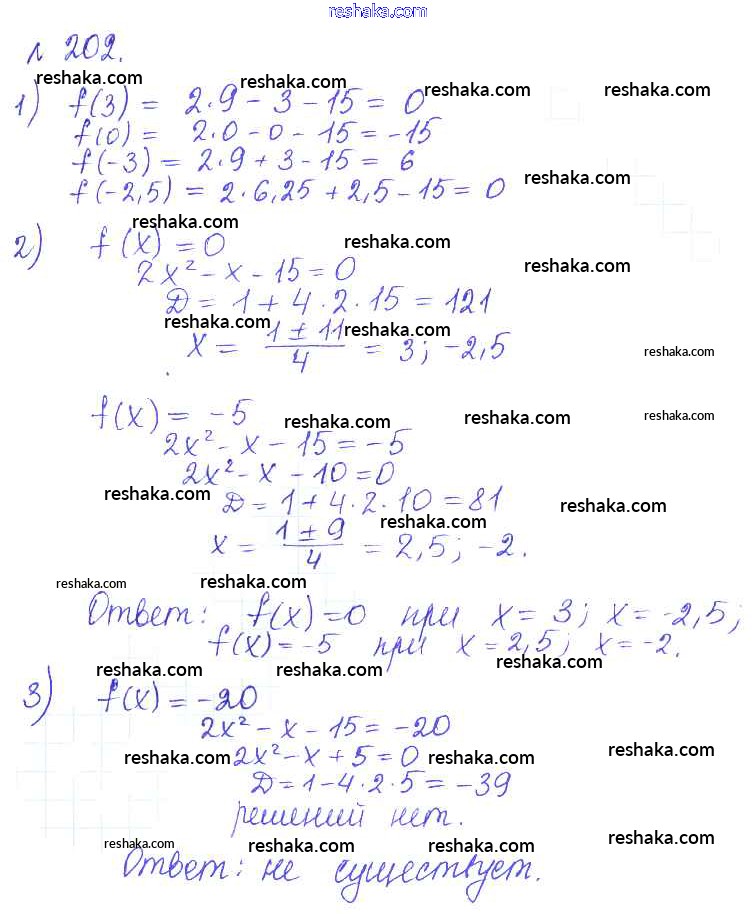 reshaka.com
№ 202.
reshaka.com reshaka.com reshaka.com reshaka.com
1) f(3) = 2·9 - 3 - 15 = 0
f(0) = 2·0 - 0 - 15 = -15
f(-3) = 2·9 + 3 - 15 = 6
reshaka.com
f(-2,5) = 2·6,25 + 2,5 - 15 = 0
reshaka.com
2) f(x) = 0
reshaka.com
2x² - x - 15 = 0
reshaka.com
Д = 1 + 4·2·15 = 121
reshaka.com reshaka.com
x = (1 ± 11)/4 = 3; -2,5
reshaka.com
f(x) = -5
reshaka.com reshaka.com reshaka.com
2x² - x - 15 = -5
2x² - x - 10 = 0
reshaka.com
Д = 1 + 4·2·10 = 81
reshaka.com
reshaka.com
x = (1 ± 9)/4 = 2,5; -2.
reshaka.com reshaka.com
Ответ: f(x) = 0 при x = 3; x = -2,5;
f(x) = -5 при x = 2,5; x = -2.
reshaka.com reshaka.com reshaka.com
3) f(x) = -20
2x² - x - 15 = -20
reshaka.com
2x² - x + 5 = 0
reshaka.com reshaka.com
Д = 1 - 4·2·5 = -39
решений нет.
reshaka.com reshaka.com reshaka.com reshaka.com
Ответ: не существует.